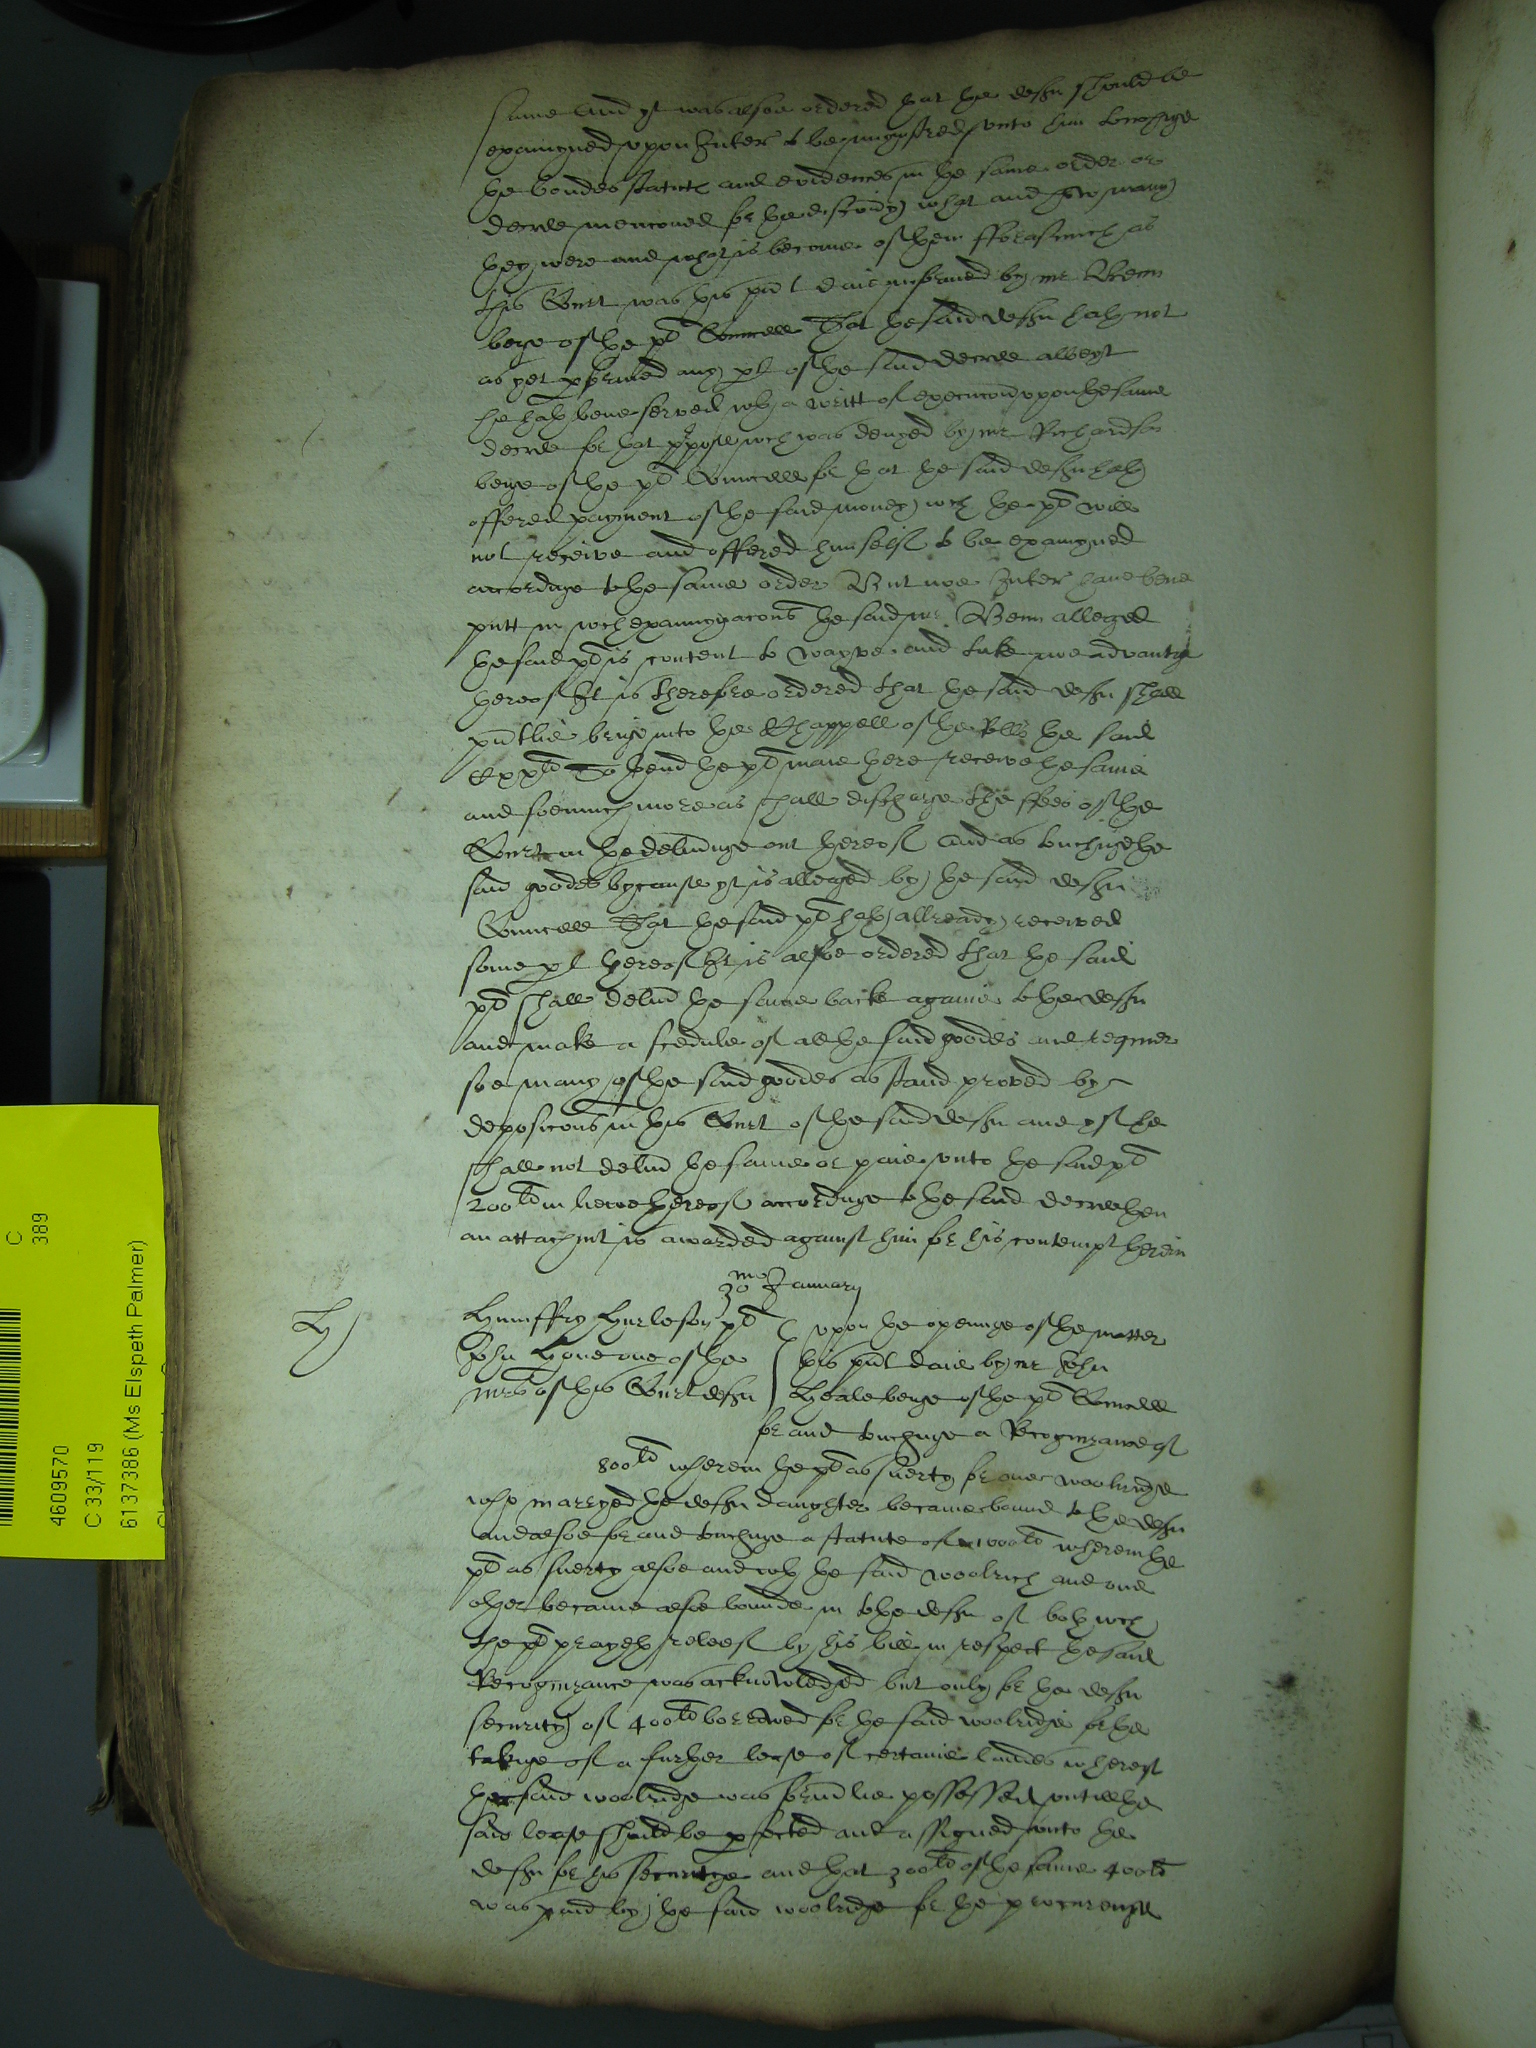 same And yt was alsoe ordered that the deft should be
examyned uppon Inter to be mynystred unto him touchinge
the bondes statute and evidences in the same order or
decree mencioned for the discovy what and how many
they were and what is become of them fforasmuch as
this Court was this pnt daie informed by mr Benn
beinge of the plt Councell That the said deft hath not
as yet pformed any pt of the said decree albeyt
he hath bene served wth a writt of execucon upon the same
decree for that ppose wch was denyed by mr Richardson
beinge of the Councell for that the said deft hath
offered payment of the said money wch the plt will
not receive and offered himself to be examyned
accordinge to the same order But noe Inter have bene
putt in wch examynacons the said mr Benn alleged
the said plt is content to wayve and take noe advantage
thereof It is therefore ordered that the said deft shall
pntlie bringe into the Chappell of the Rolls the said
To thend the plt maie there receive the same
and soe much more as shall discharge the ffees of the
Court in the delivinge out thereof And as touchinge the
said goodes bycause yt is alleaged by the said deft
Councell That the said plt hath allready received
some pt thereof It is alsoe ordered that the said
plt shall deliv the same backe againe to the deft
and make a scedule of all the said goodes and require
soe many of the said goodes as stand proved by
deposicons in this Court of the said deft and yf he
shall not deliv the same or paie unto the said plt
200li in liewe thereof accordinge to the said decree then
an attachmt is awarded against him for his contempt therein
30mo January
Hy
Humffry Hurleston plt
John Hone one of the
mrs of this Court deft
upon the openinge of the matter
this pnt daie by mr John
Heale beinge of the plt Councell
for and touchinge a Recognizance of
800li wherein the plt as suerty for one woolridge
who marryed the deft daughter became bound to the deft
and alsoe for and touchinge a statute of 1000li wherein the
plt as suerty alsoe and wth the said woolrich and one
other became alsoe bounde in to the deft of both wch
the plt prayeth releef by his bill in respect the said
Recognizance was acknowledged but only for the deft
security of 400li borrowed for the said woolridge for the
takinge of a further lease of certaine landes whereof
the said woolridge was formlie possessed untill the
said lease should be pfected and assigned unto the
deft for his securitye and that 300li of the same 400li
was paid by the said woolridge for the procuremt
4609570
C 33/119
6137386 (Ms Elspeth Palmer)
C
389